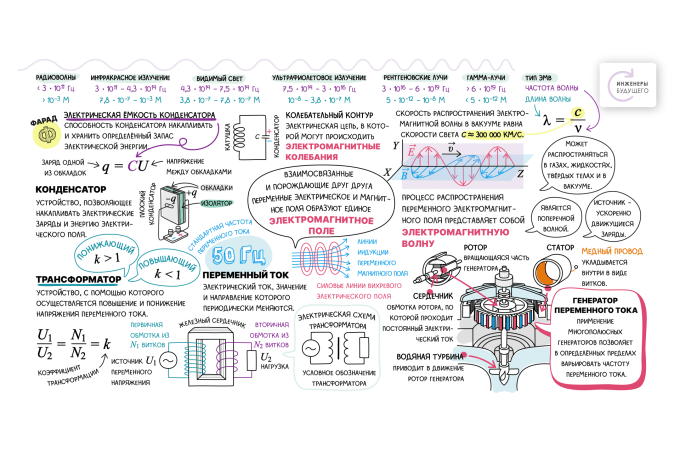 РАДИОВОЛНЫ
< 3 · 10¹¹ Гц
> 10⁻³ М
ИНФРАКРАСНОЕ ИЗЛУЧЕНИЕ
3 · 10¹¹ - 4,3 · 10¹⁴ Гц
7,8 · 10⁻⁷ - 10⁻³ М
ВИДИМЫЙ СВЕТ
4,3 · 10¹⁴ - 7,5 · 10¹⁴ Гц
3,8 · 10⁻⁷ - 7,8 · 10⁻⁷ М
УЛЬТРАФИОЛЕТОВОЕ ИЗЛУЧЕНИЕ
РЕНТГЕНОВСКИЕ ЛУЧИ
ГАММА-ЛУЧИ
ТИП ЭМВ
ЧАСТОТА ВОЛНЫ
ДЛИНА ВОЛНЫ
ИНЖЕНЕРЫ
БУДУЩЕГО
λ = c
ν
ФАРАД
ЭЛЕКТРИЧЕСКАЯ ЁМКОСТЬ КОНДЕНСАТОРА
СПОСОБНОСТЬ КОНДЕНСАТОРА НАКАПЛИВАТЬ
И ХРАНИТЬ ОПРЕДЕЛЁННЫЙ ЗАПАС
ЭЛЕКТРИЧЕСКОЙ ЭНЕРГИИ
ЗАРЯД ОДНОЙ
ИЗ ОБКЛАДОК
q = CU
НАПРЯЖЕНИЕ
МЕЖДУ ОБКЛАДКАМИ
КАТУШКА
C
КОНДЕНСАТОР
КОЛЕБАТЕЛЬНЫЙ КОНТУР
ЭЛЕКТРИЧЕСКАЯ ЦЕПЬ, В КОТО-
РОЙ МОГУТ ПРОИСХОДИТЬ
ЭЛЕКТРОМАГНИТНЫЕ
КОЛЕБАНИЯ
СКОРОСТЬ РАСПРОСТРАНЕНИЯ ЭЛЕКТРО-
МАГНИТНОЙ ВОЛНЫ В ВАКУУМЕ РАВНА
СКОРОСТИ СВЕТА C ≈ 300 000 КМ/С.
Y
E
υ
B
X
Z
МОЖЕТ
РАСПРОСТРАНЯТЬСЯ
В ГАЗАХ, ЖИДКОСТЯХ,
ТВЁРДЫХ ТЕЛАХ И В
ВАКУУМЕ.
КОНДЕНСАТОР
УСТРОЙСТВО, ПОЗВОЛЯЮЩЕЕ
НАКАПЛИВАТЬ ЭЛЕКТРИЧЕСКИЕ
ЗАРЯДЫ И ЭНЕРГИЮ ЭЛЕКТРИ-
ЧЕСКОГО ПОЛЯ.
ПЛОСКИЙ
КОНДЕНСАТОР
-q
+q
ОБКЛАДКИ
ИЗОЛЯТОР
ВЗАИМОСВЯЗАННЫЕ
И ПОРОЖДАЮЩИЕ ДРУГ ДРУГА
ПЕРЕМЕННЫЕ ЭЛЕКТРИЧЕСКОЕ И МАГНИТ-
НОЕ ПОЛЯ ОБРАЗУЮТ ЕДИНОЕ
ЭЛЕКТРОМАГНИТНОЕ
ПОЛЕ
ПРОЦЕСС РАСПРОСТРАНЕНИЯ
ПЕРЕМЕННОГО ЭЛЕКТРОМАГНИТ-
НОГО ПОЛЯ ПРЕДСТАВЛЯЕТ СОБОЙ
ЭЛЕКТРОМАГНИТНУЮ
ВОЛНУ
ЯВЛЯЕТСЯ
ПОПЕРЕЧНОЙ
ВОЛНОЙ.
ИСТОЧНИК -
УСКОРЕННО
ДВИЖУЩИЕСЯ
ЗАРЯДЫ.
ПОНИЖАЮЩИЙ
k > 1
ПОВЫШАЮЩИЙ
k < 1
СТАНДАРТНАЯ ЧАСТОТА
ПЕРЕМЕННОГО ТОКА
50 Гц
ЛИНИИ
ИНДУКЦИИ
ПЕРЕМЕННОГО
МАГНИТНОГО ПОЛЯ
СИЛОВЫЕ ЛИНИИ ВИХРЕВОГО
ЭЛЕКТРИЧЕСКОГО ПОЛЯ
ТРАНСФОРМАТОР
УСТРОЙСТВО, С ПОМОЩЬЮ КОТОРОГО
ОСУЩЕСТВЛЯЕТСЯ ПОВЫШЕНИЕ И ПОНИЖЕНИЕ
НАПРЯЖЕНИЯ ПЕРЕМЕННОГО ТОКА.
ПЕРЕМЕННЫЙ ТОК
ЭЛЕКТРИЧЕСКИЙ ТОК, ЗНАЧЕНИЕ
И НАПРАВЛЕНИЕ КОТОРОГО
ПЕРИОДИЧЕСКИ МЕНЯЮТСЯ.
U₁ = N₁ = k
U₂ N₂
КОЭФФИЦИЕНТ
ТРАНСФОРМАЦИИ
ПЕРВИЧНАЯ
ОБМОТКА ИЗ
N₁ ВИТКОВ
ИСТОЧНИК U₁
ПЕРЕМЕННОГО
НАПРЯЖЕНИЯ
ЖЕЛЕЗНЫЙ СЕРДЕЧНИК
ВТОРИЧНАЯ
ОБМОТКА ИЗ
N₂ ВИТКОВ
U₂
НАГРУЗКА
ЭЛЕКТРИЧЕСКАЯ СХЕМА
ТРАНСФОРМАТОРА
УСЛОВНОЕ ОБОЗНАЧЕНИЕ
ТРАНСФОРМАТОРА
РОТОР
ВРАЩАЮЩАЯСЯ ЧАСТЬ
ГЕНЕРАТОРА
СТАТОР
МЕДНЫЙ ПРОВОД
УКЛАДЫВАЕТСЯ
ВНУТРИ В ВИДЕ
ВИТКОВ.
СЕРДЕЧНИК
ОБМОТКА РОТОРА, ПО
КОТОРОЙ ПРОХОДИТ
ПОСТОЯННЫЙ ЭЛЕКТРИ-
ЧЕСКИЙ ТОК
ВОДЯНАЯ ТУРБИНА
ПРИВОДИТ В ДВИЖЕНИЕ
РОТОР ГЕНЕРАТОРА
ГЕНЕРАТОР
ПЕРЕМЕННОГО ТОКА
ПРИМЕНЕНИЕ
МНОГОПОЛЮСНЫХ
ГЕНЕРАТОРОВ ПОЗВОЛЯЕТ
В ОПРЕДЕЛЁННЫХ ПРЕДЕЛАХ
ВАРЬИРОВАТЬ ЧАСТОТУ
ПЕРЕМЕННОГО ТОКА.